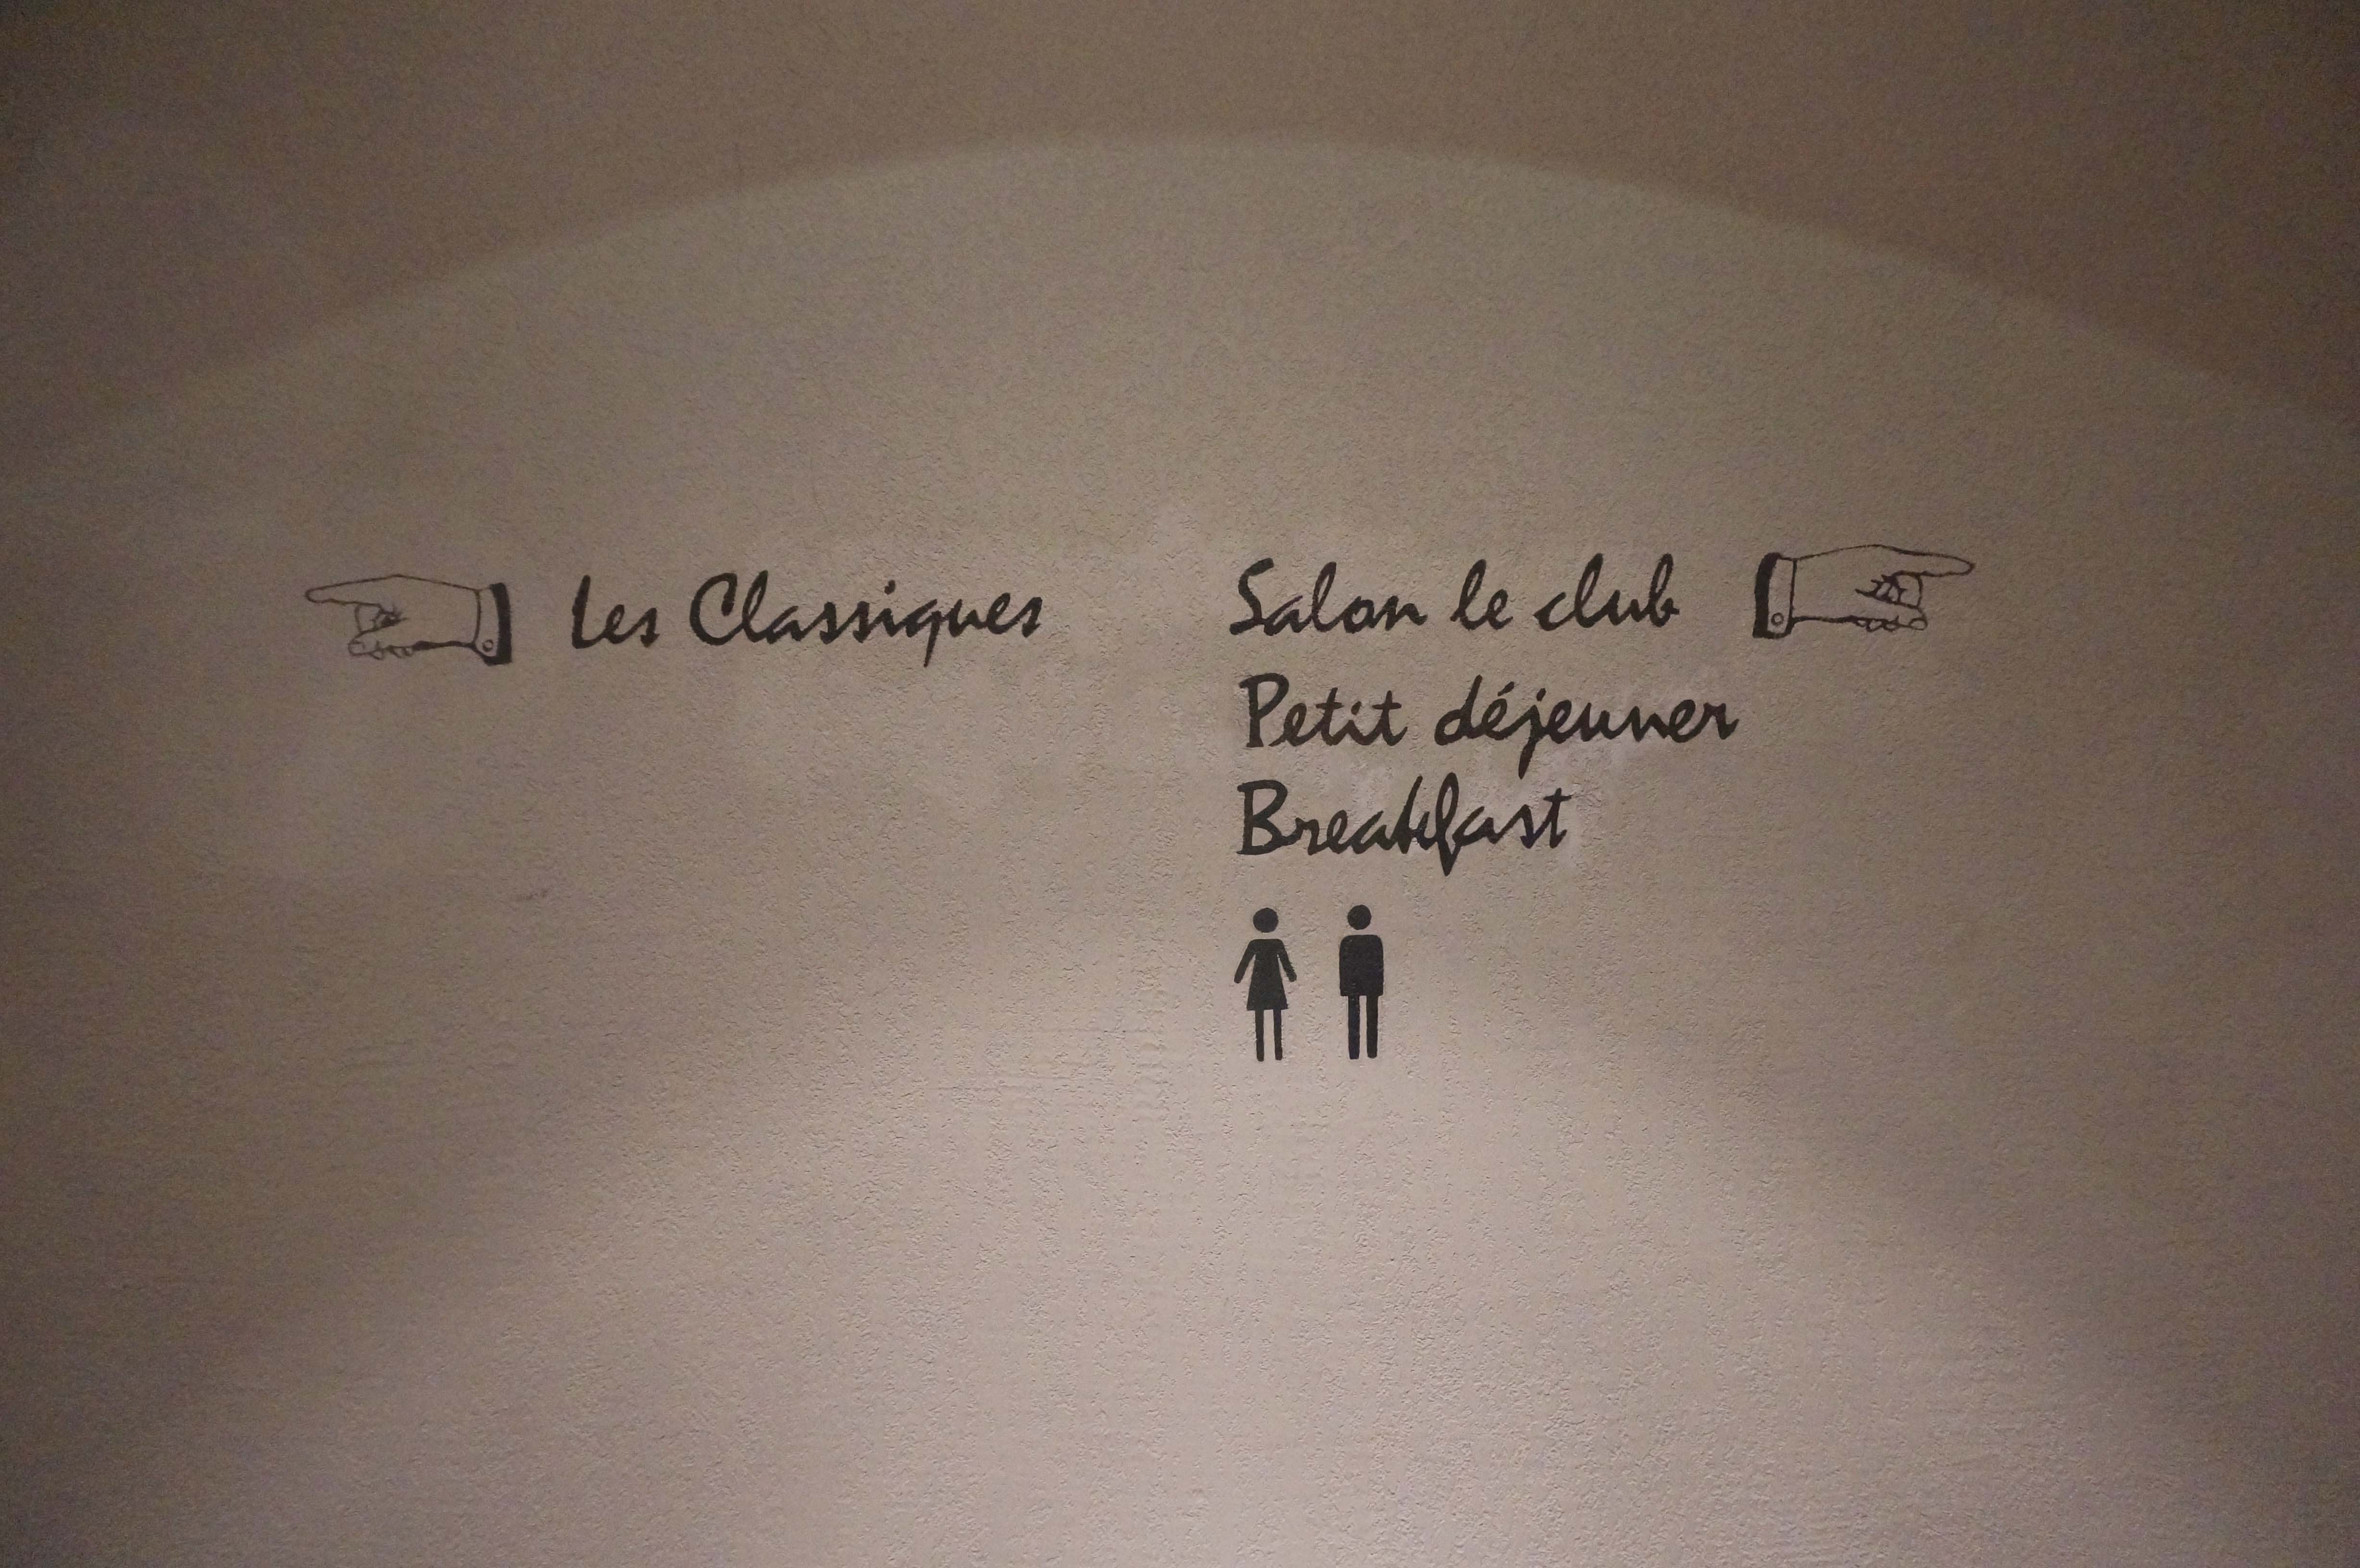 Les Classiques
Salon le club
Petit déjeuner
Breakfast